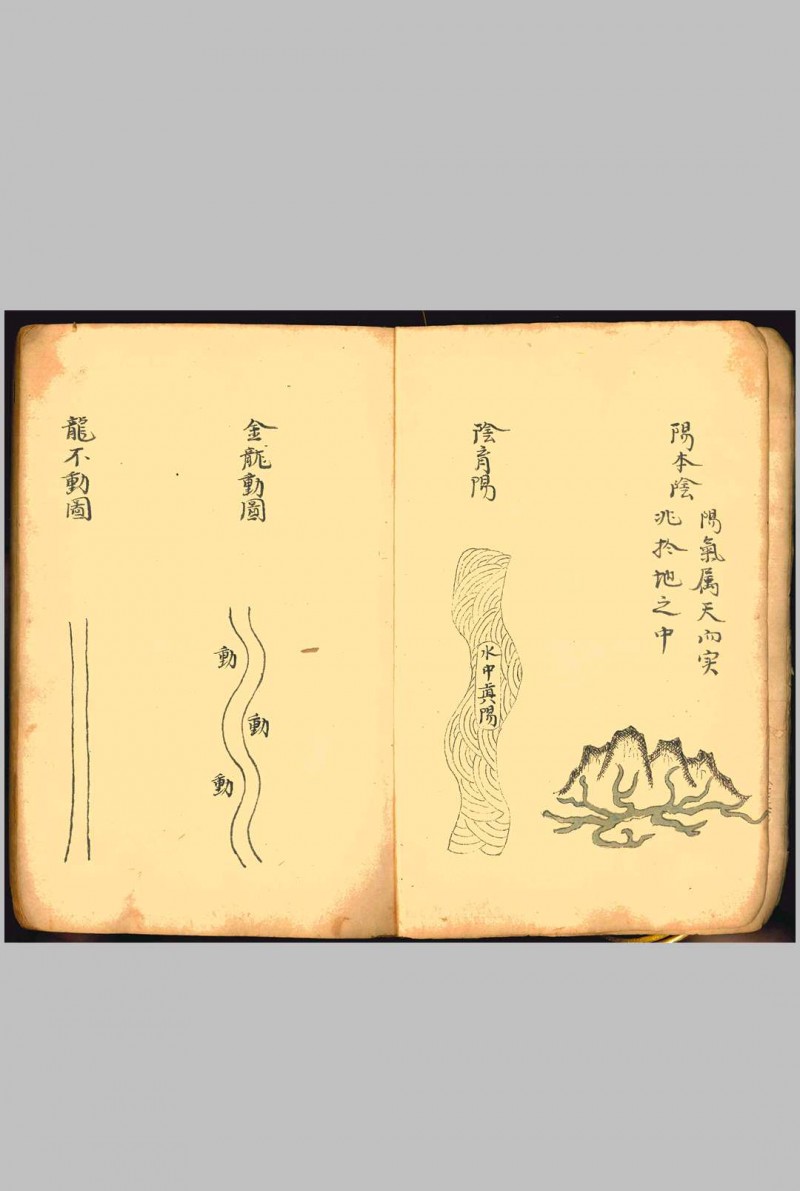 陽本陰
陽氣属天而实
兆扵地之中
陰育陽
水中真陽
金龍動圖
動
動
動
龍不動圖